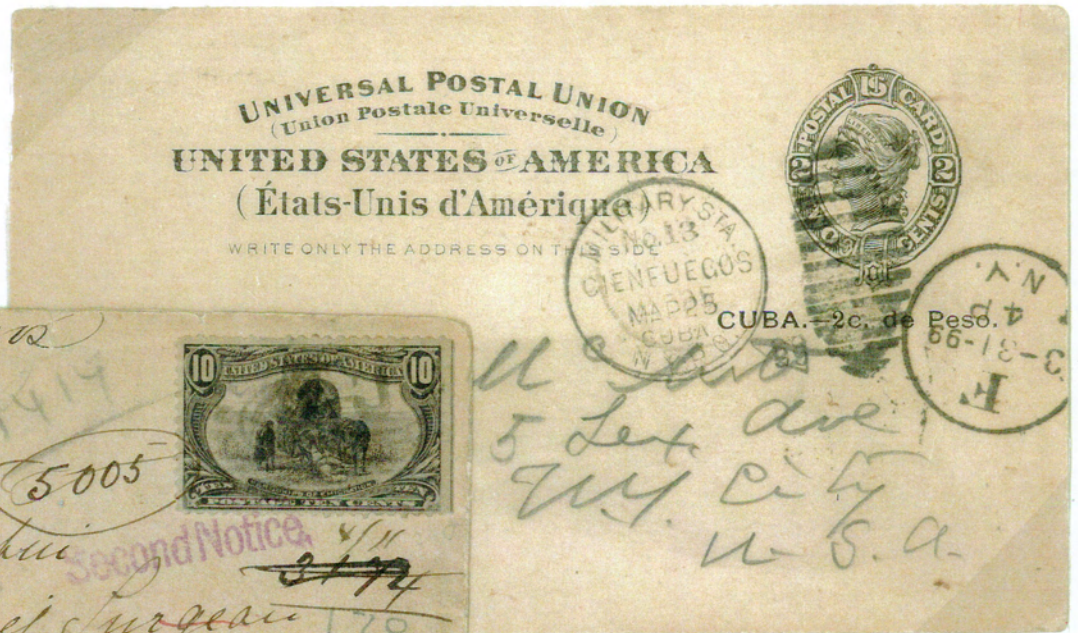 UNIVERSAL POSTAL UNION
(Union Postale Universelle)
UNITED STATES OF AMERICA
(États-Unis d'Amérique)
WRITE ONLY THE ADDRESS ON THIS SIDE
POSTAL 1$ CARD
2 2
TWO CENTS
CUBA.—2c. de Peso.
MILITARY STA.
No. 13
CIENFUEGOS
MAR 25
CUBA
N.Y.
4 P
3-31-99
F
5 Lex. Ave
N.Y. City
U.S.A.
10 UNITED STATES OF AMERICA 10
POSTAGE TEN CENTS
5005
Second Notice
4/11
Surgeon